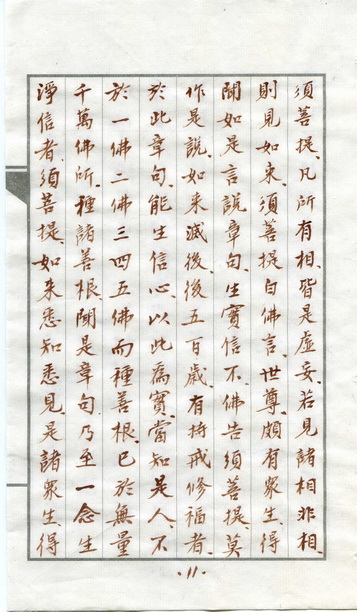 須菩提、凡所有相、皆是虛妄、若見諸相非相、
則見如來、須菩提白佛言、世尊、頗有眾生、得
聞如是言說章句、生實信不、佛告須菩提、莫
作是說、如來滅後、後五百歲、有持戒修福者、
於此章句、能生信心、以此為實、當知是人、不
於一佛二佛三四五佛而種善根、已於無量
千萬佛所、種諸善根、聞是章句、乃至一念生
淨信者、須菩提、如來悉知悉見、是諸眾生、得
·11·